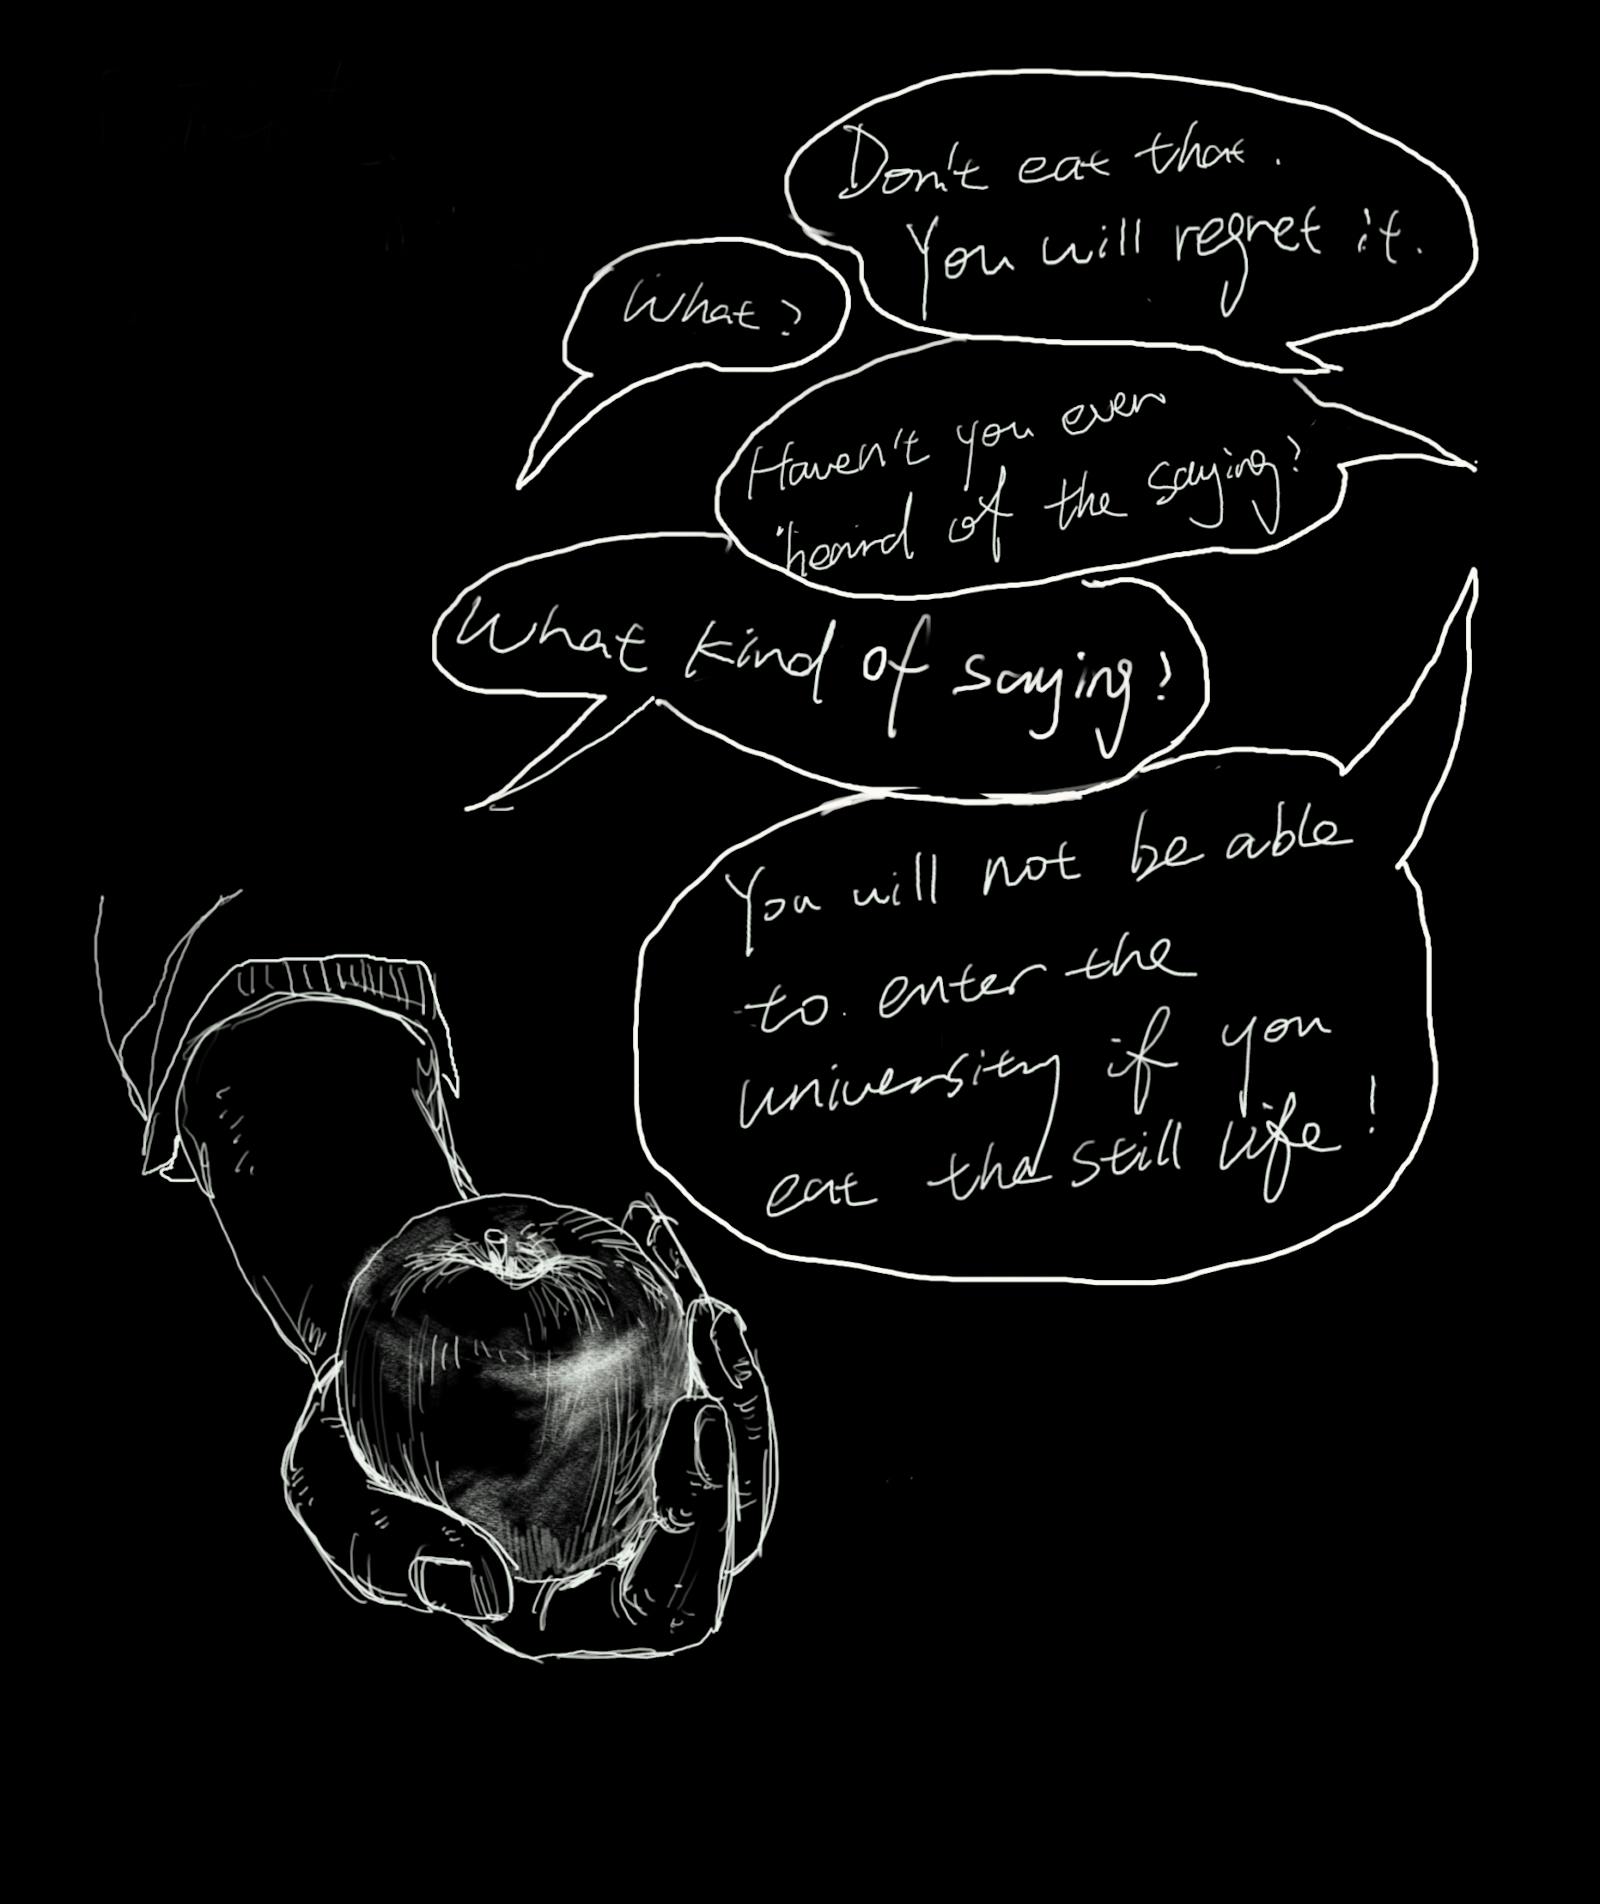 Don't eat that.
You will regret it.
What?
Haven't you even
heard of the saying?
What kind of saying?
You will not be able
to enter the
university if you
eat the still life!